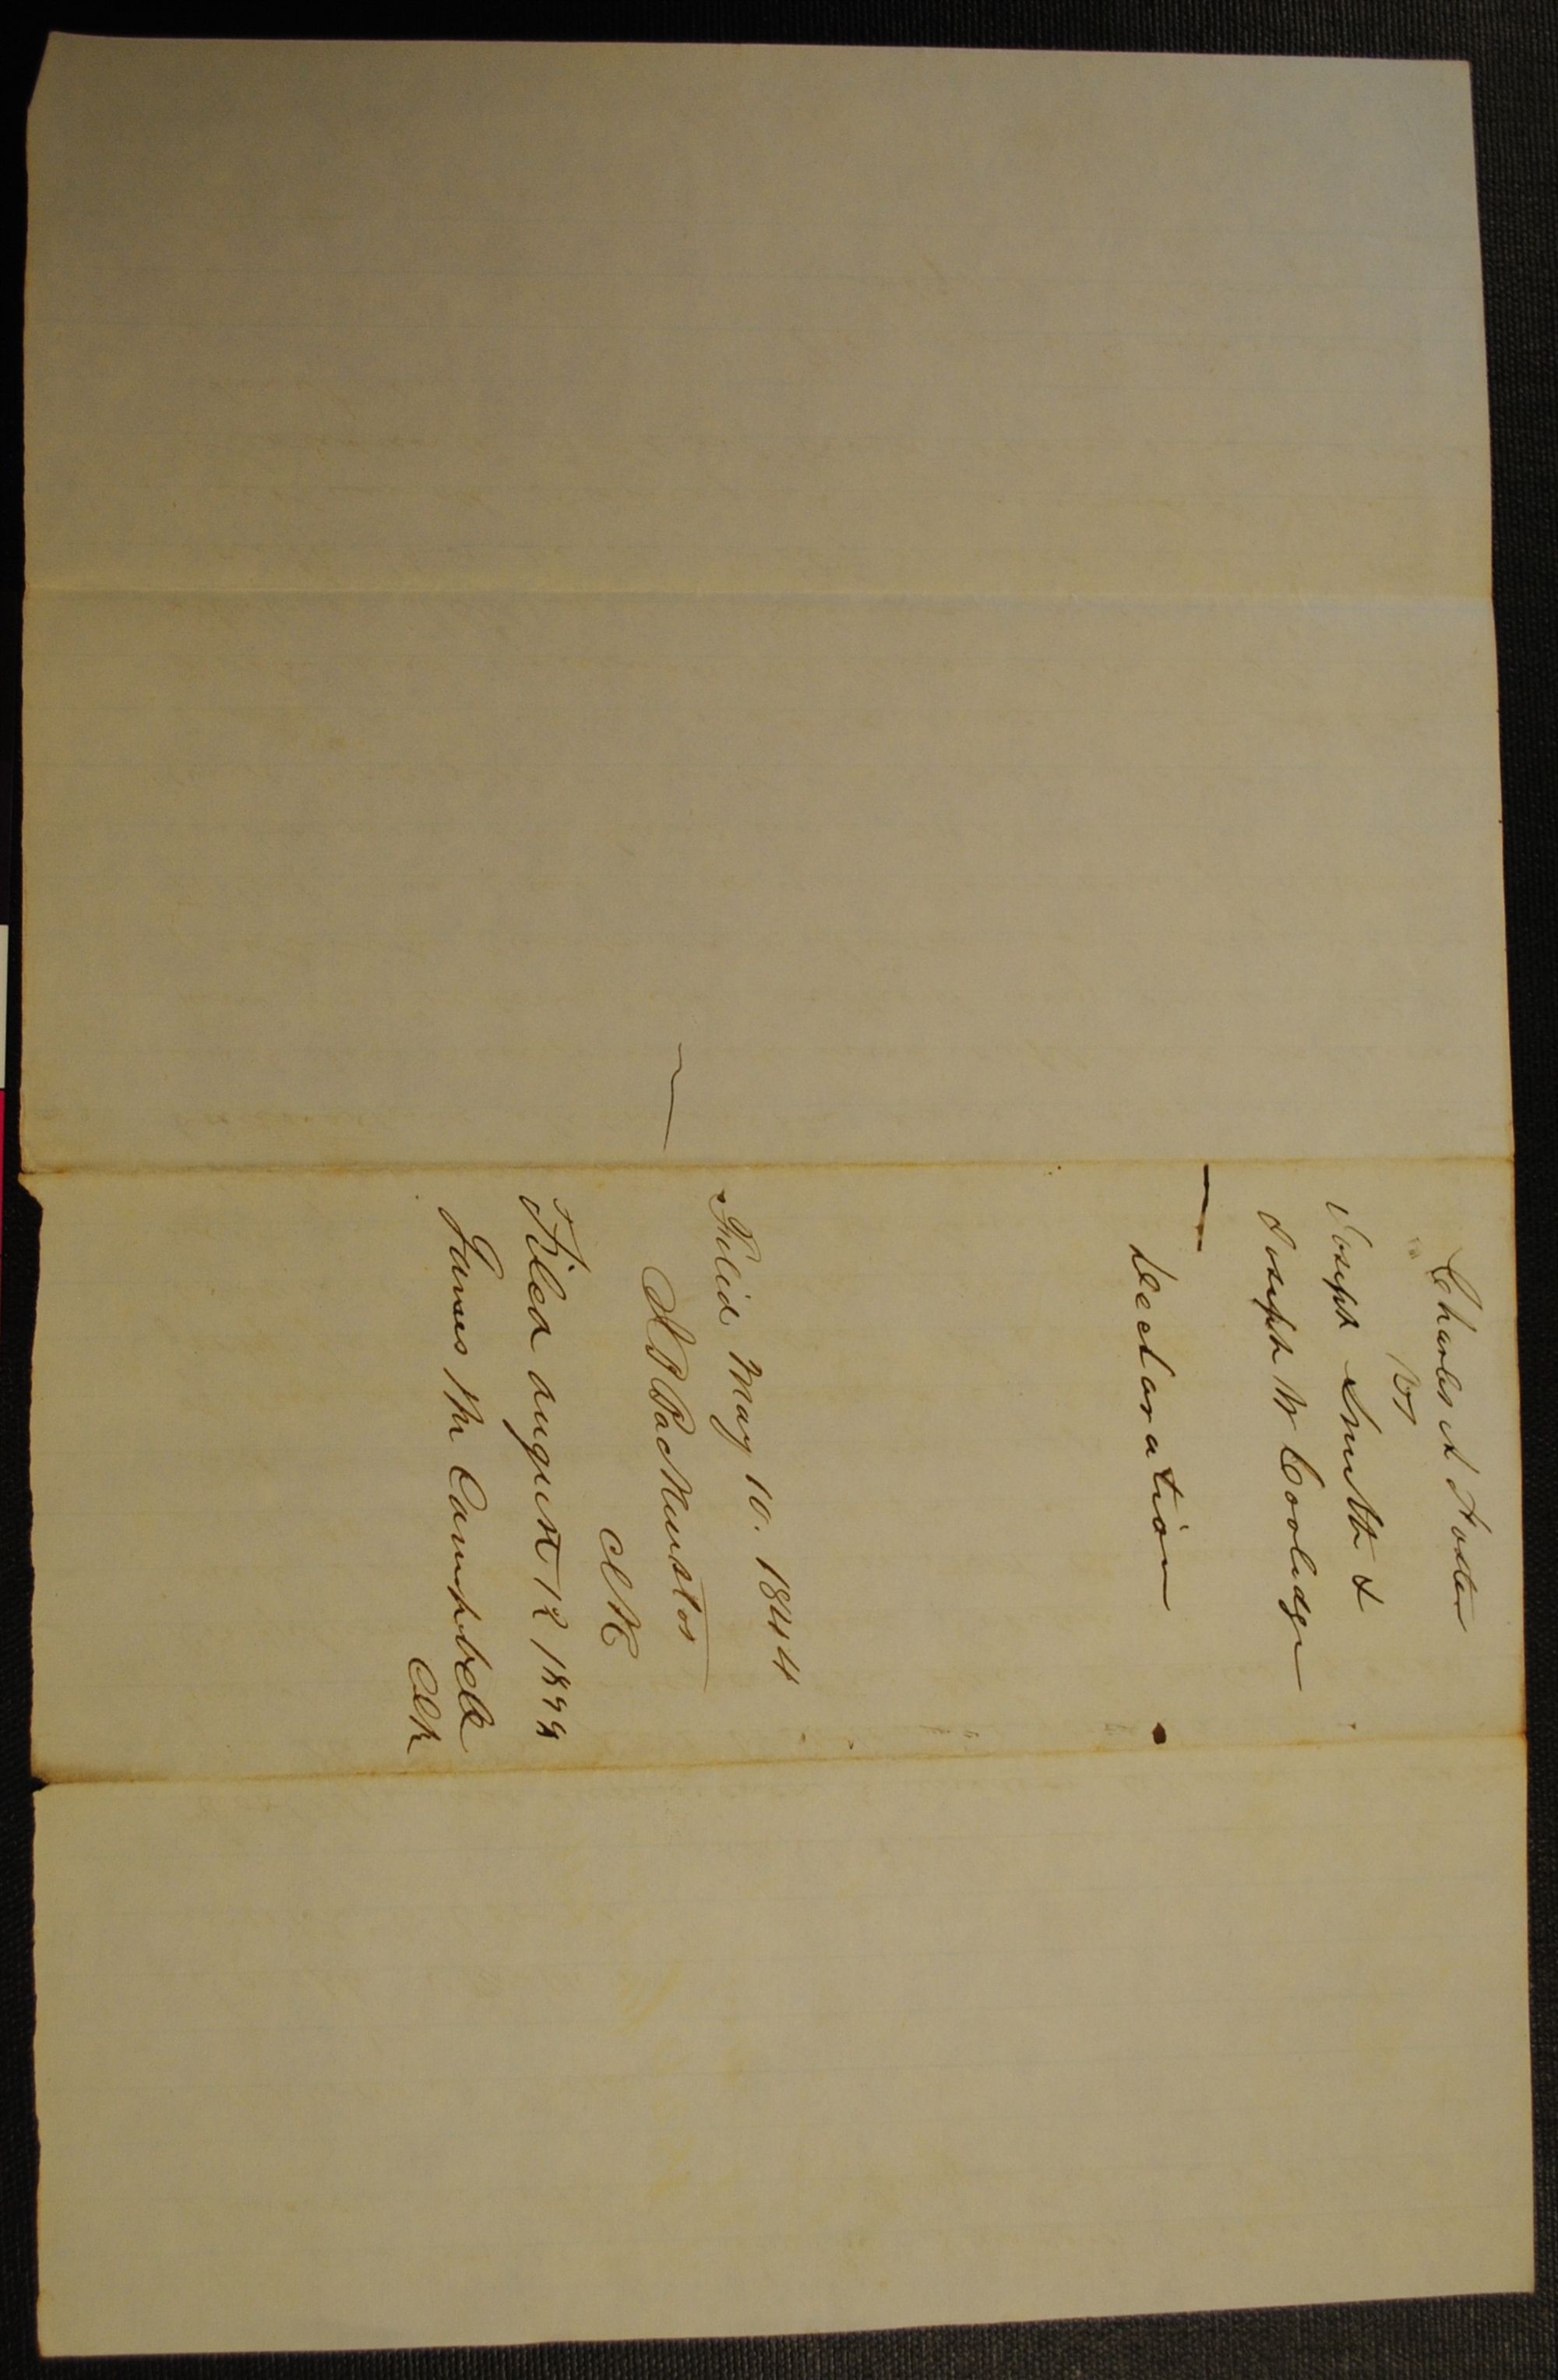 Charles A Foster
vs
Joseph Smith &
Joseph W Coolidge
Declaration
Filed May 10. 1844
J B Backenstos
Clk
Filed August 12 1844
James M Campbell
Clk